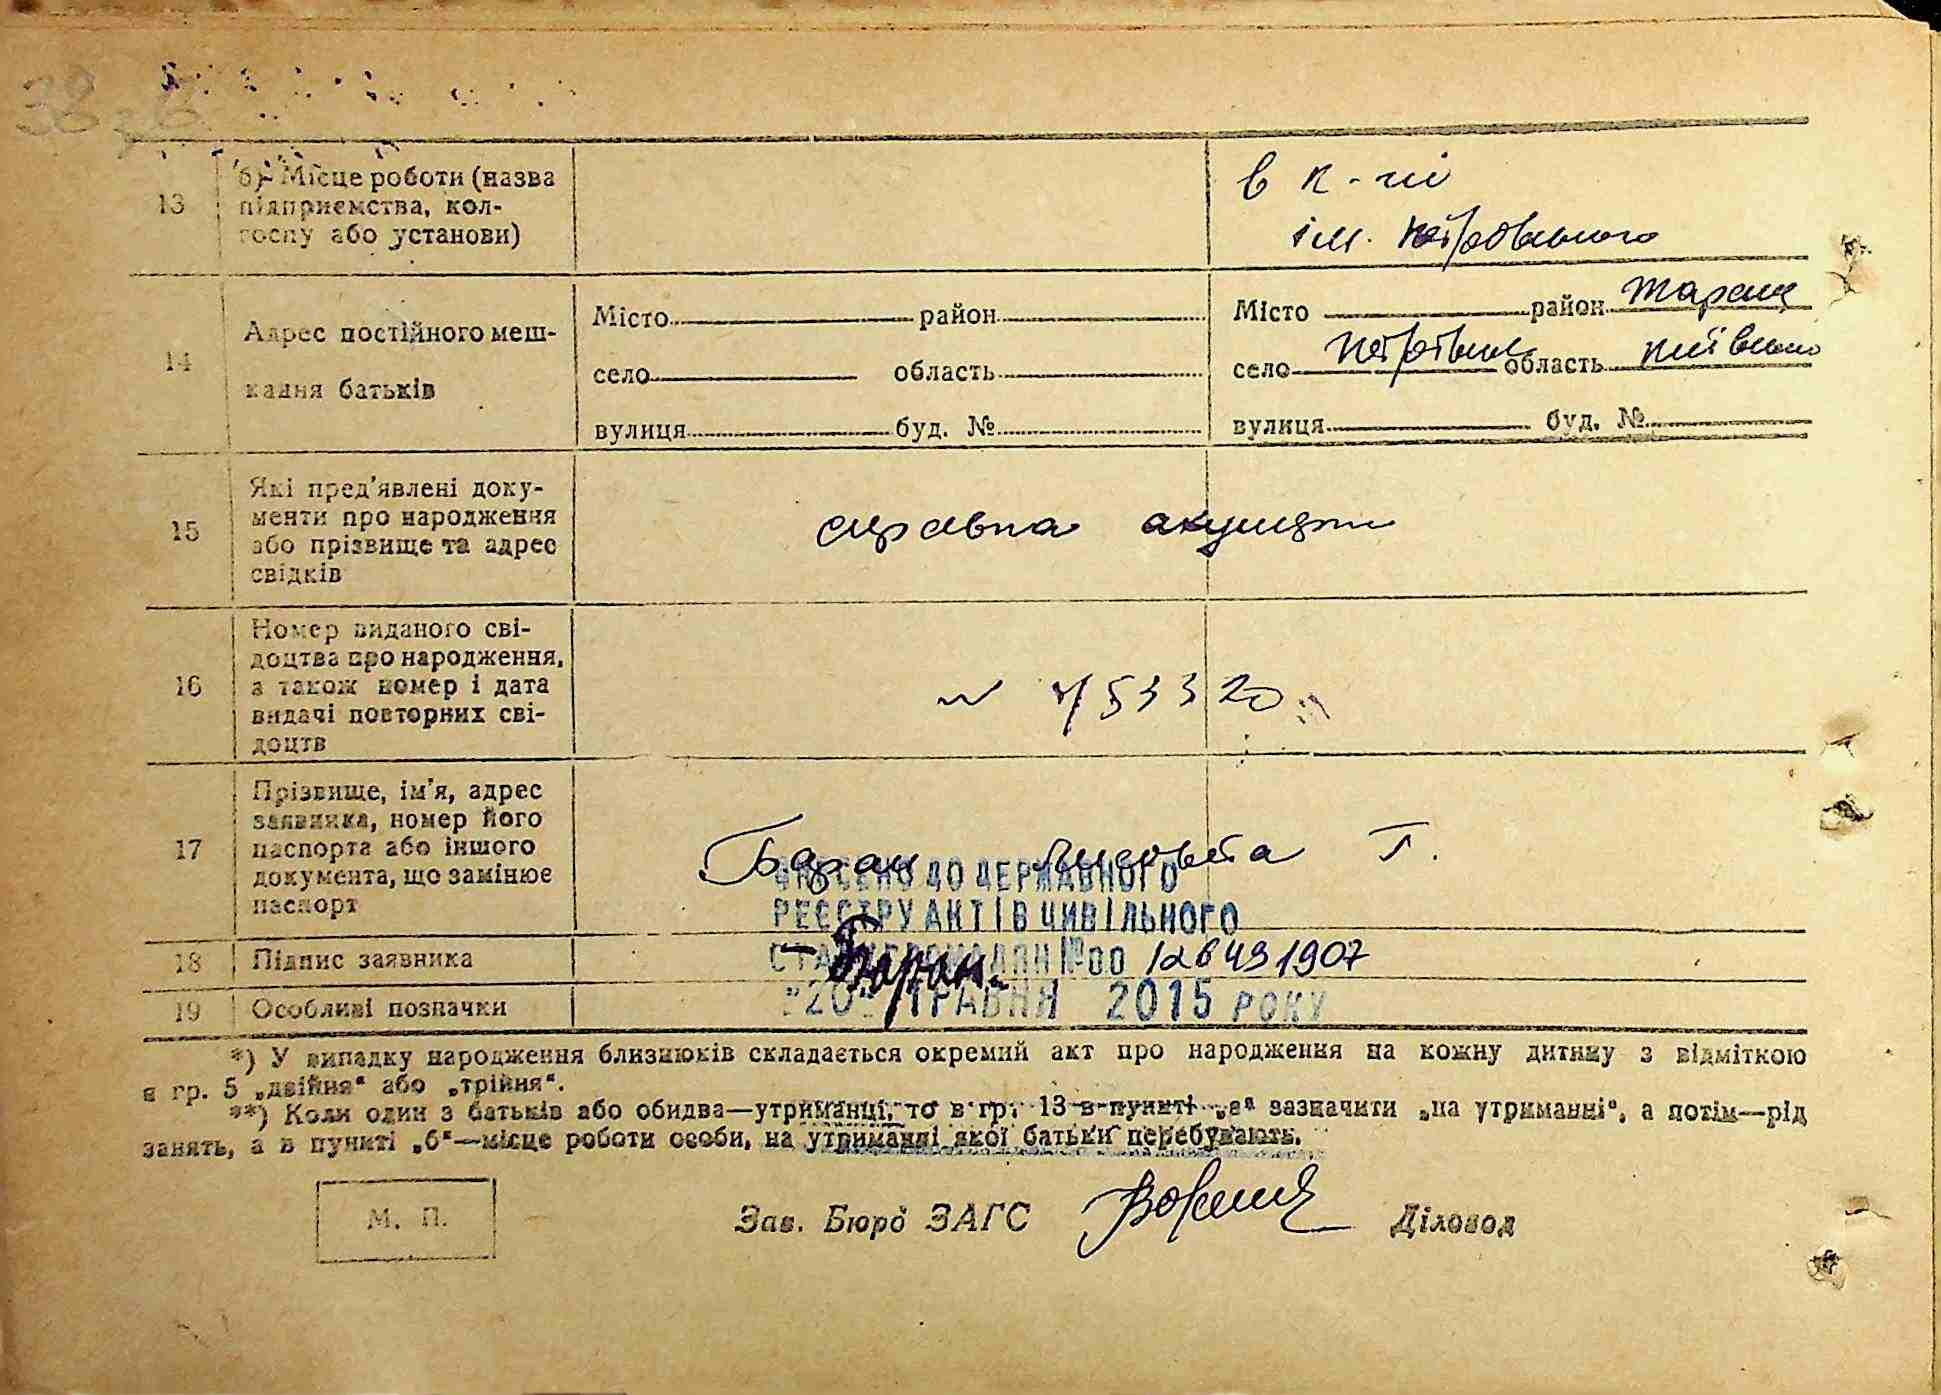 38 зв
13
б) Місце роботи (назва
підприємства, кол-
госпу або установи)
в к-пі
ім. Петровського
14
Адрес постійного меш-
кання батьків
Місто район
село область
вулиця буд. №
Місто район Таращ
село Петрівка область Київська
вулиця буд. №
15
Які пред'явлені доку-
менти про народження
або прізвище та адрес
свідків
справка акушерки
16
Номер виданого сві-
доцтва про народження,
а також номер і дата
видачі повторних сві-
доцтв
N 753320
17
Прізвище, ім'я, адрес
заявника, номер його
паспорта або іншого
документа, що замінює
паспорт
Баран Лисовета Г.
ВНЕСЕНО ДО ДЕРЖАВНОГО
РЕЄСТРУ АКТІВ ЦИВІЛЬНОГО
18
Підпис заявника
Баран
СТАНУ ГРОМАДЯН №00 126491907
19
Особливі позначки
"20" ТРАВНЯ 2015 РОКУ
*) У випадку народження близнюків складається окремий акт про народження на кожну дитину з відміткою
в гр. 5 „двійня" або „трійня".
**) Коли один з батьків або обидва—утриманці, то в гр. 13 в пункті „а" зазначити „на утриманні", а потім—рід
занять, а в пункті „б"—місце роботи особи, на утриманні якої батьки перебувають.
М. П.
Зав. Бюро ЗАГС
Діловод